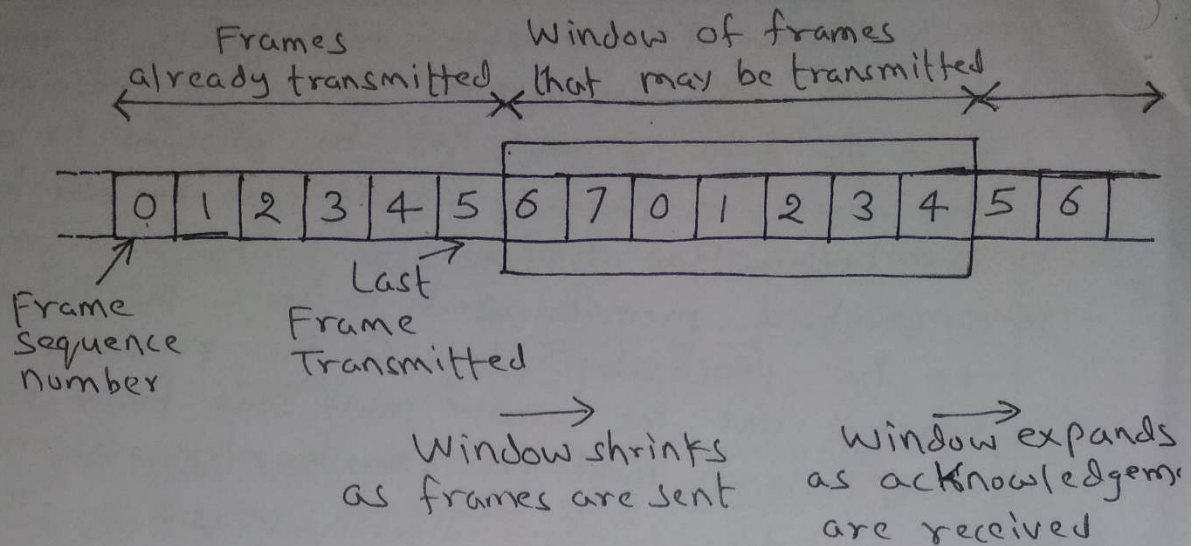 Frames
already transmitted
Window of frames
that may be transmitted
0 1 2 3 4 5 6 7 0 1 2 3 4 5 6
Frame
sequence
number
Last
Frame
Transmitted
Window shrinks
as frames are sent
Window expands
as acknowledgem
are received